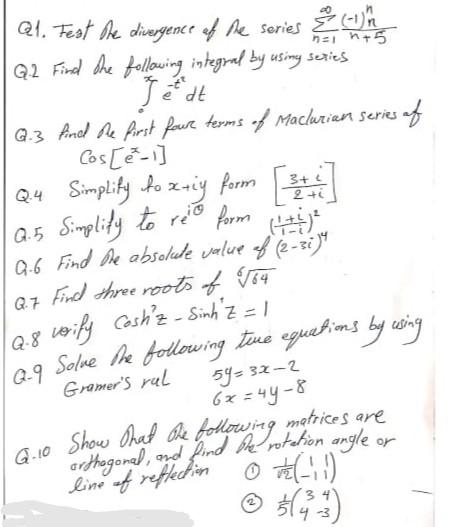 Q1. Test the divergence of the series ∑_{n=1}^{∞} (-1)^n n / n+5
Q.2 Find the following integral by using series
∫_0^x e^{-t²} dt
Q.3 find the first four terms of Maclurian series of
Cos[e^x-1]
Q.4 Simplify to x+iy form [3+i / 2+i]
Q.5 Simplify to re^{iθ} form (1+i / 1-i)²
Q.6 Find the absolute value of (2-3i)^4
Q.7 Find three roots of ⁶√64
Q.8 verify Cosh²z - Sinh²z = 1
Q.9 Solve the following tewe equations by using
Gramer's rul 5y = 3x-2
6x = 4y-8
Q.10 Show that the following matrices are
orthogonal, and find the rotation angle or
line of reflection ① 1/√2 (1 1; -1 1)
② 1/5 (3 4; 4 -3)